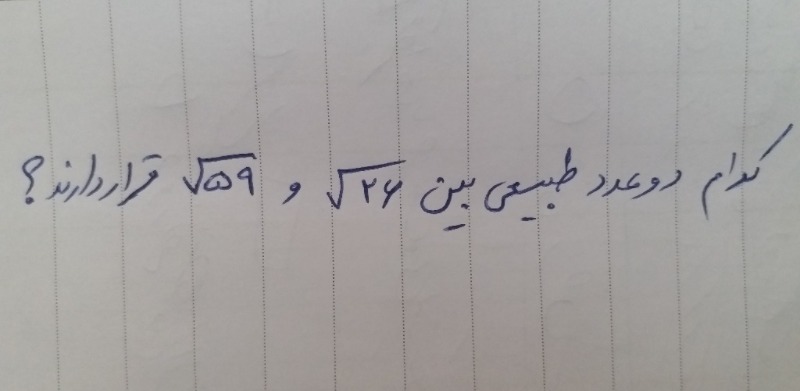 کدام دو عدد طبیعی بین √۲۶ و √۵۹ قرار دارند؟